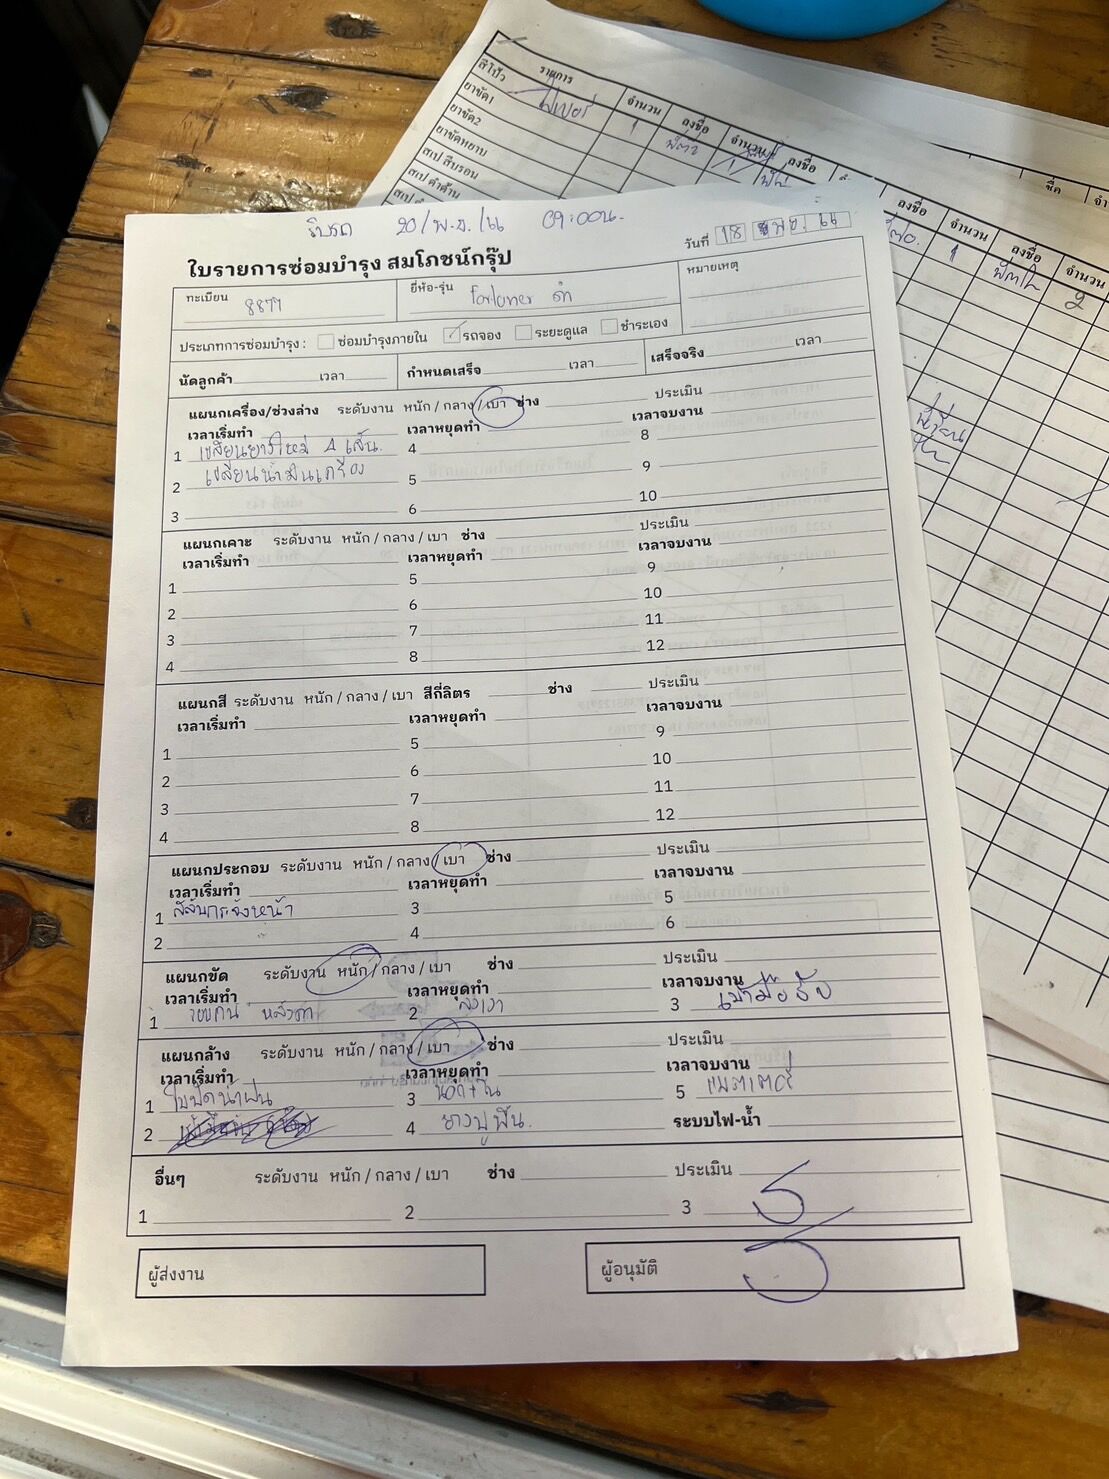 รับรถ 20/พ.ย./ 09:00น.
วันที่ 18
ใบรายการซ่อมบำรุง สมโภชน์กรุ๊ป
ทะเบียน 8877
ยี่ห้อ-รุ่น fortuner ดำ
หมายเหตุ
ประเภทการซ่อมบำรุง : ซ่อมบำรุงภายใน รถจอง ระยะดูแล ชำระเอง
นัดลูกค้า เวลา กำหนดเสร็จ เวลา เสร็จจริง เวลา
แผนกเครื่อง/ช่วงล่าง ระดับงาน หนัก / กลาง / เบา ช่าง ประเมิน
เวลาเริ่มทำ เวลาหยุดทำ เวลาจบงาน
1 เปลี่ยนยางใหม่ 4 เส้น. 4 8
2 เปลี่ยนน้ำมันเครื่อง 5 9
3 6 10
แผนกเคาะ ระดับงาน หนัก / กลาง / เบา ช่าง ประเมิน
เวลาเริ่มทำ เวลาหยุดทำ เวลาจบงาน
1 5 9
2 6 10
3 7 11
4 8 12
แผนกสี ระดับงาน หนัก / กลาง / เบา สีกี่ลิตร ช่าง ประเมิน
เวลาเริ่มทำ เวลาหยุดทำ เวลาจบงาน
1 5 9
2 6 10
3 7 11
4 8 12
แผนกประกอบ ระดับงาน หนัก / กลาง / เบา ช่าง ประเมิน
เวลาเริ่มทำ เวลาหยุดทำ เวลาจบงาน
1 กระจังหน้า 3 5
2 4 6
แผนกขัด ระดับงาน หนัก / กลาง / เบา ช่าง ประเมิน
เวลาเริ่มทำ เวลาหยุดทำ เวลาจบงาน
1 รอบคัน หลังคา 2 ลงเงา 3
แผนกล้าง ระดับงาน หนัก / กลาง / เบา ช่าง ประเมิน
เวลาเริ่มทำ เวลาหยุดทำ เวลาจบงาน
1 ใบปัดน้ำฝน 3 นอก+ใน 5 แบตเตอรี่
2 4 ยางปูพื้น. ระบบไฟ-น้ำ
อื่นๆ ระดับงาน หนัก / กลาง / เบา ช่าง ประเมิน
1 2 3
ผู้ส่งงาน ผู้อนุมัติ
รายการ จำนวน ลงชื่อ จำนวน ลงชื่อ
สีโป๊ว ไฟเบอร์ 1
ยาขัด1
ยาขัด2
ยาขัดหยาบ
สเป สีบรอน
สเป ดำด้าน
ลงชื่อ จำนวน ลงชื่อ จำนวน
1 2